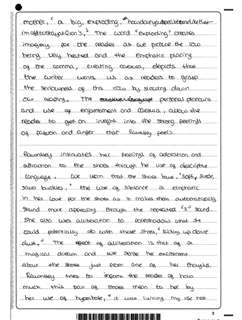 mother," a big, exploding,
The word "exploding" creates
imagery for the reader as we picture the row
being very heated and the emphatic placing
of the comma, creating caesura, depicts that
the writer wants us as readers to grasp
the seriousness of this row by slowing down
our reading. The personal pronouns
and use of enjambment and caesura, allows the
reader to gain an insight into the strong feelings
of passion and anger that Rumsey feels.
feelings of adoration and
attraction to the shoes through the use of descriptive
language. We learn that the shoes have, "softly suede,
silver buckles," the use of sibilance is emphatic
in her love for the shoes as it makes them automatically
sound more appealing through the repeated "s" sound.
She also uses alliteration to
could potentially do with these shoes, "kicking up dance
dust." The effect of alliteration is that of a
magical dream and we sense her excitement
about the shoes just from one of her thoughts.
tries to inform the reader of how
much this pair of shoes mean to her by
her use of hyperbole, "it was ruining my life not